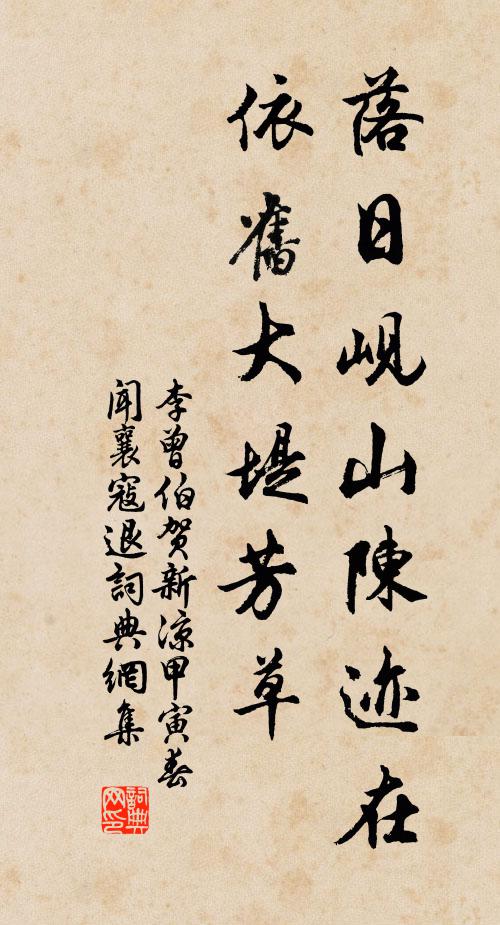 落日岘山陳迹在
依舊大堤芳草
李曾伯贺新凉甲寅春
闻襄寇退詞典網集
詞典
网印